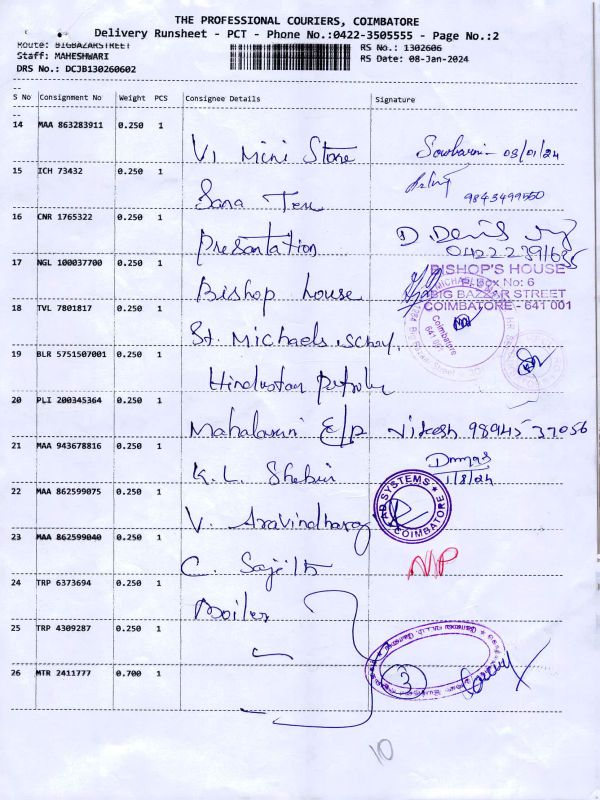 THE PROFESSIONAL COURIERS, COIMBATORE
Delivery Runsheet - PCT - Phone No.:0422-3505555 - Page No.:2
Route: BIGBAZARSTREET
RS No.: 1302606
Staff: MAHESHWARI
RS Date: 08-Jan-2024
DRS No.: DCJB130260602
S No Consignment No Weight PCS Consignee Details Signature
14 MAA 863283911 0.250 1
V, Mini Store 09/01/24
15 ICH 73432 0.250 1
Sara Tex 9843499550
16 CNR 1765322 0.250 1
Presantation D. Denis
17 NGL 100037700 0.250 1
Bishop house
BISHOP'S HOUSE
P. Box No: 6
BIG BAZAAR STREET
COIMBATORE - 641 001
18 TVL 7801817 0.250 1
St. Michaels
Coimbatore
641 001
19 BLR 5751507001 0.250 1
Hindustan
20 PLI 200345364 0.250 1
E/P 98945 37056
21 MAA 943678816 0.250 1
K. L.
22 MAA 862599075 0.250 1
V. Aravindharaj
SYSTEMS
COIMBATORE
23 MAA 862599040 0.250 1
C.
24 TRP 6373694 0.250 1
Boiler
25 TRP 4309287 0.250 1
26 MTR 2411777 0.700 1
3
10